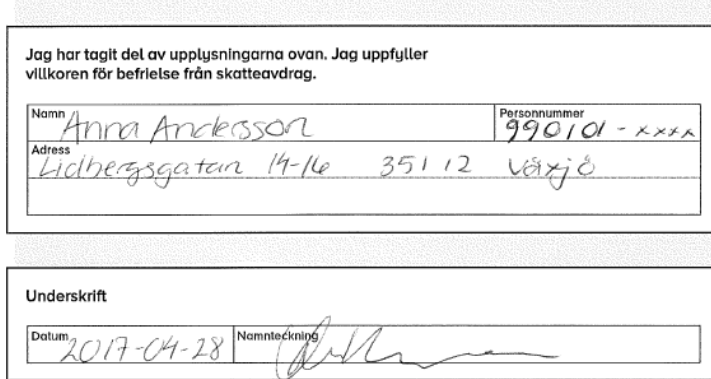 Jag har tagit del av upplysningarna ovan. Jag uppfyller
villkoren för befrielse från skatteavdrag.
Namn Anna Andersson
Personnummer 990101-xxxx
Adress
Lidbergsgatan 14-16 351 12 Växjö
Underskrift
Datum 2017-04-28
Namnteckning